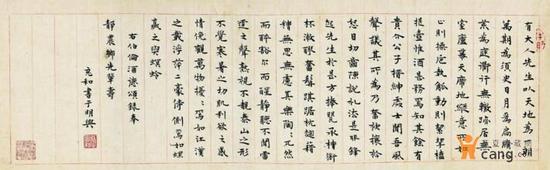 有大人先生以天地為一朝
萬期為須臾日月為扃牖八
荒為庭衢行無轍跡居無
室廬幕天席地縱意所如
止則操卮執觚動則挈榼
提壺惟酒是務焉知其餘有
貴介公子搢紳處士聞吾風
聲議其所以乃奮袂攘衿
怒目切齒陳說禮法是非鋒
起先生於是方捧甖承槽銜
杯漱醪奮髯踑踞枕麴藉
糟無思無慮其樂陶陶兀然
而醉豁爾而醒靜聽不聞雷
霆之聲熟視不覩泰山之形
不覺寒暑之切肌利欲之感
情俯觀萬物擾擾焉如江漢
之載浮萍二豪侍側焉如蜾
蠃之與螟蛉
右伯倫酒德頌錄奉
靜農鄉兄華壽
充和書于
cang.com